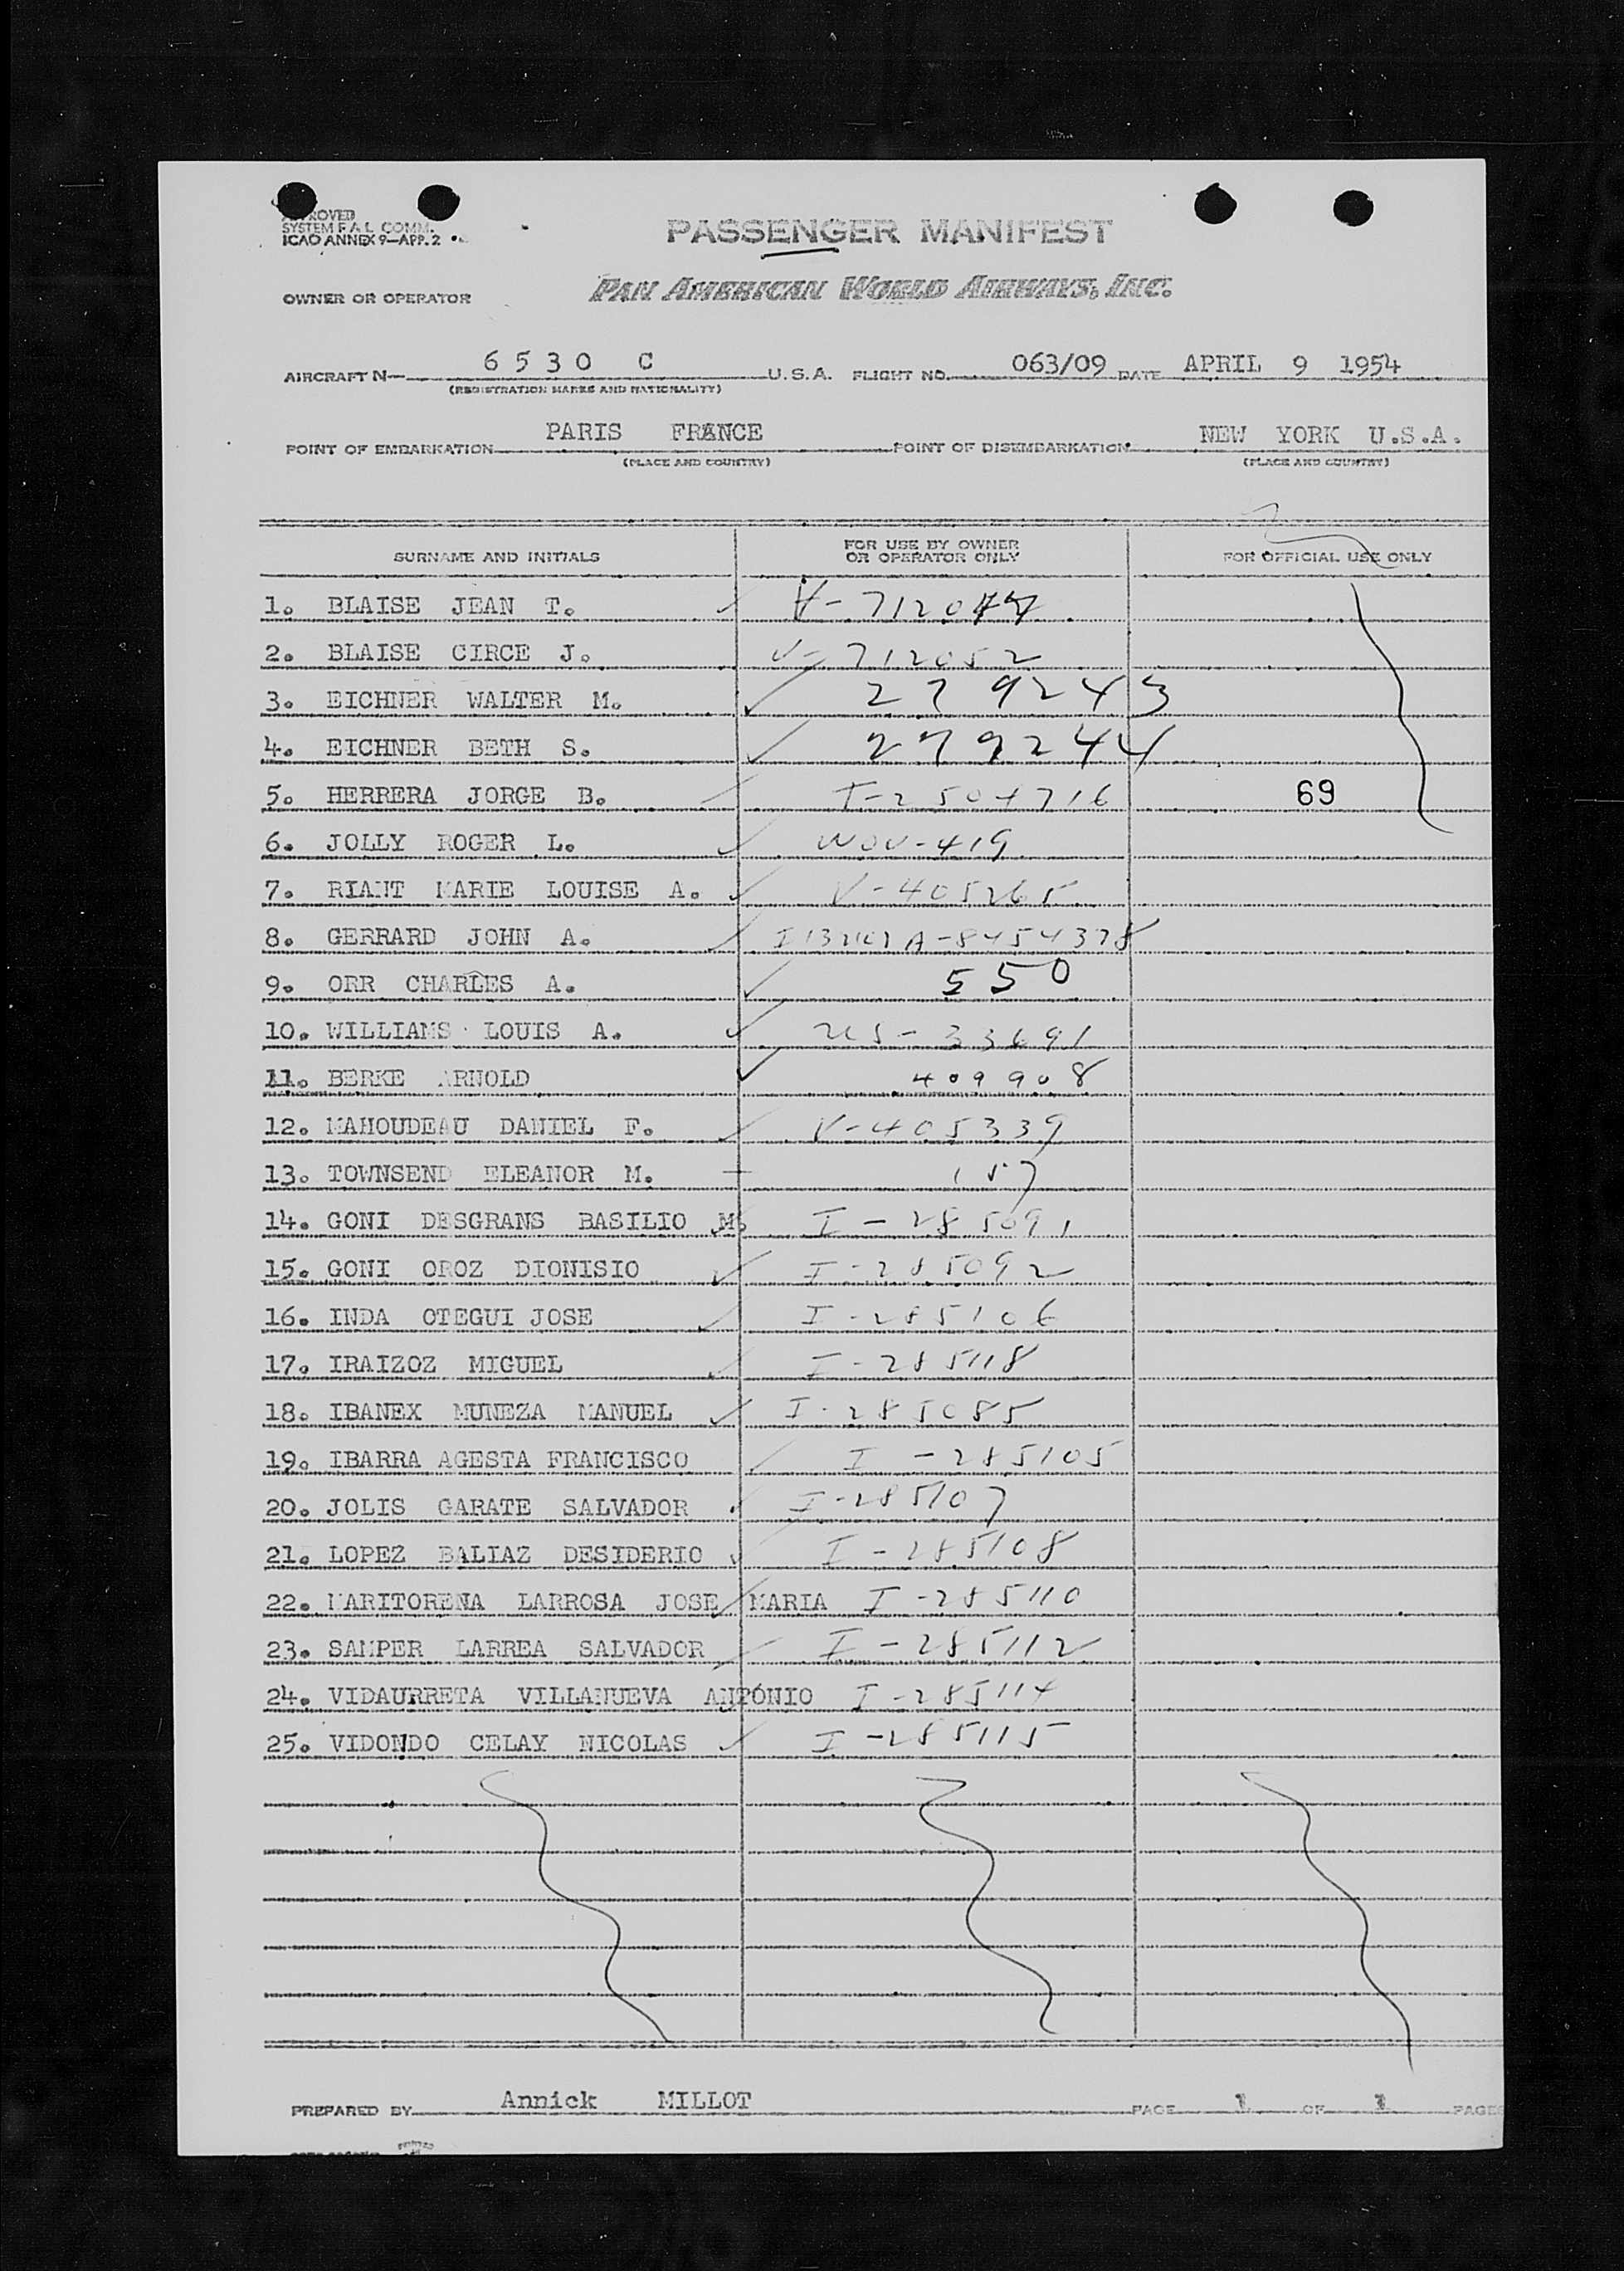 APPROVED
SYSTEM F A L COMM.
ICAO ANNEX 9—APP. 2
PASSENGER MANIFEST
OWNER OR OPERATOR PAN AMERICAN WORLD AIRWAYS, INC.
AIRCRAFT N— 6530 C U.S.A. FLIGHT NO. 063/09 DATE APRIL 9 1954
(REGISTRATION MARKS AND NATIONALITY)
POINT OF EMBARKATION PARIS FRANCE POINT OF DISEMBARKATION NEW YORK U.S.A.
(PLACE AND COUNTRY) (PLACE AND COUNTRY)
SURNAME AND INITIALS FOR USE BY OWNER OR OPERATOR ONLY FOR OFFICIAL USE ONLY
1. BLAISE JEAN T.
2. BLAISE CIRCE J. V-712052
3. EICHNER WALTER M. 279243
4. EICHNER BETH S. 279244
5. HERRERA JORGE B. 69
6. JOLLY ROGER L. NOV-419
7. RIANT MARIE LOUISE A. V-405265
8. GERRARD JOHN A. A-8454378
9. ORR CHARLES A. 550
10. WILLIAMS LOUIS A. US-33691
11. BERKE ARNOLD 409908
12. MAHOUDEAU DANIEL F. V-405339
13. TOWNSEND ELEANOR M. 157
14. GONI DESGRANS BASILIO M. I-285091
15. GONI OROZ DIONISIO I-285092
16. INDA OTEGUI JOSE I-285106
17. IRAIZOZ MIGUEL I-285118
18. IBANEX MUNEZA MANUEL I-285085
19. IBARRA AGESTA FRANCISCO I-285105
20. JOLIS GARATE SALVADOR I-285107
21. LOPEZ BALIAZ DESIDERIO I-285108
22. MARITORENA LARROSA JOSE MARIA I-285110
23. SAMPER LARREA SALVADOR I-285112
24. VIDAURRETA VILLANUEVA ANTONIO I-285114
25. VIDONDO CELAY NICOLAS I-285115
PREPARED BY Annick MILLOT PAGE 1 OF 1 PAGES